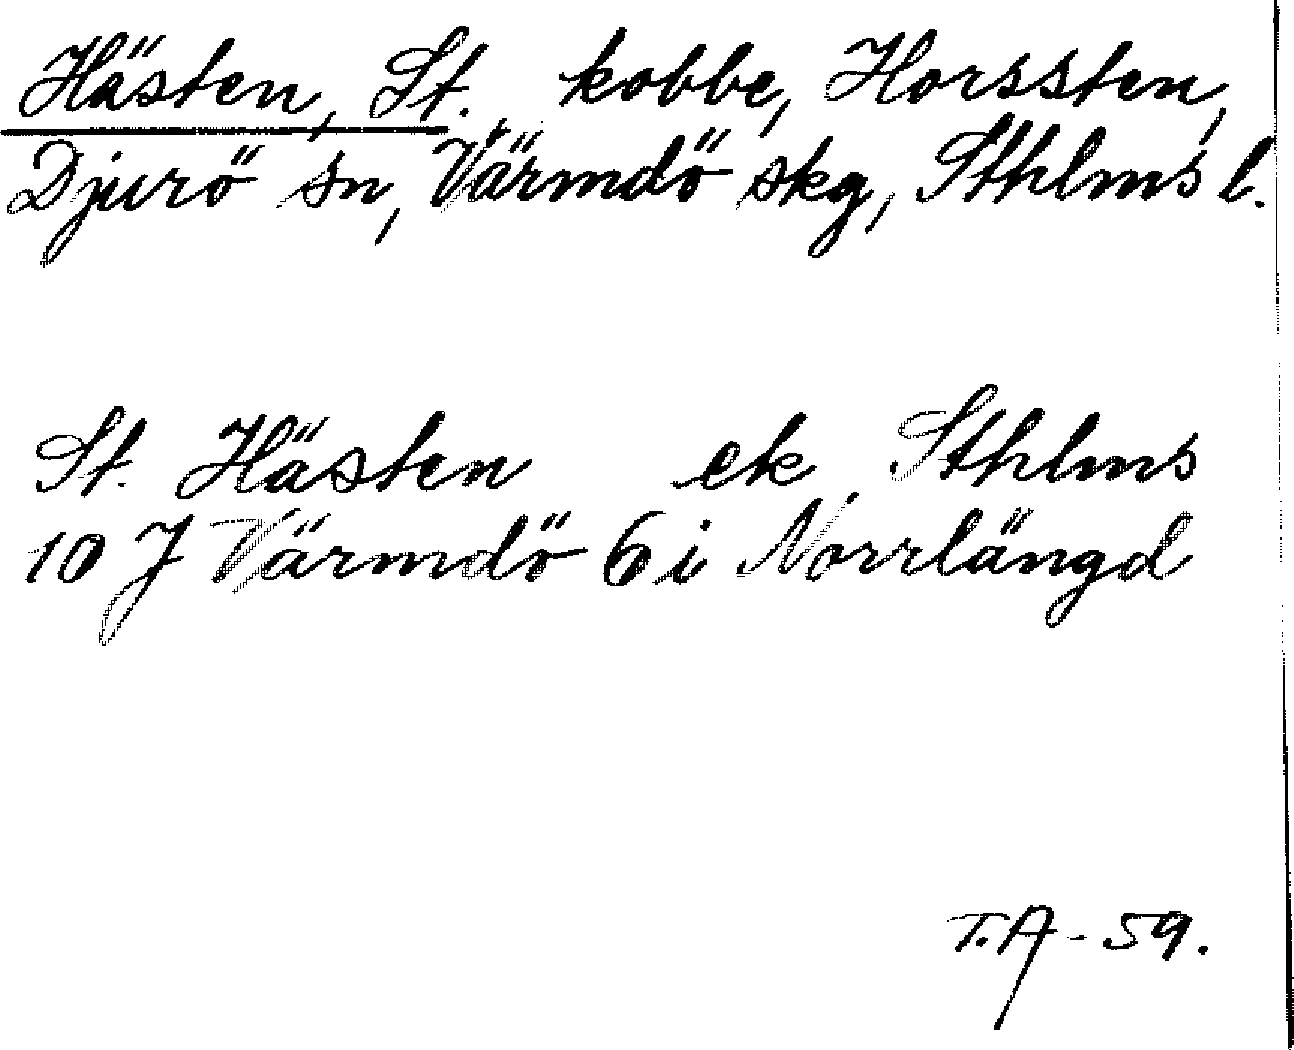 Hästen, St. kobbe, Horssten,
Djurö sn, Värmdö skg, Sthlms l.
St. Hästen ek Sthlms
10 J Värmdö 6 i Norrlängd
T.A - 59.